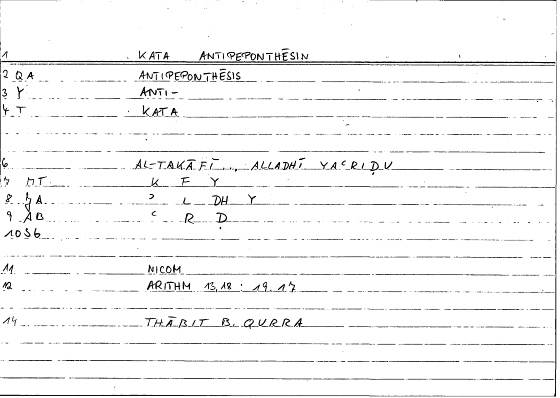 1 KATA ANTIPEPONTHĒSIN
2 QA ANTIPEPONTHĒSIS
3 Y ANTI-
4 T KATA
6 AL-TAKĀFĪ... ALLADHĪ YAʿRIḌU
7 MT K F Y
8 JA ʾ L DH Y
9 AB ʿ R Ḍ
10 S6
11 NICOM
12 ARITHM 13,18 : 19.17
14 THĀBIT B. QURRA